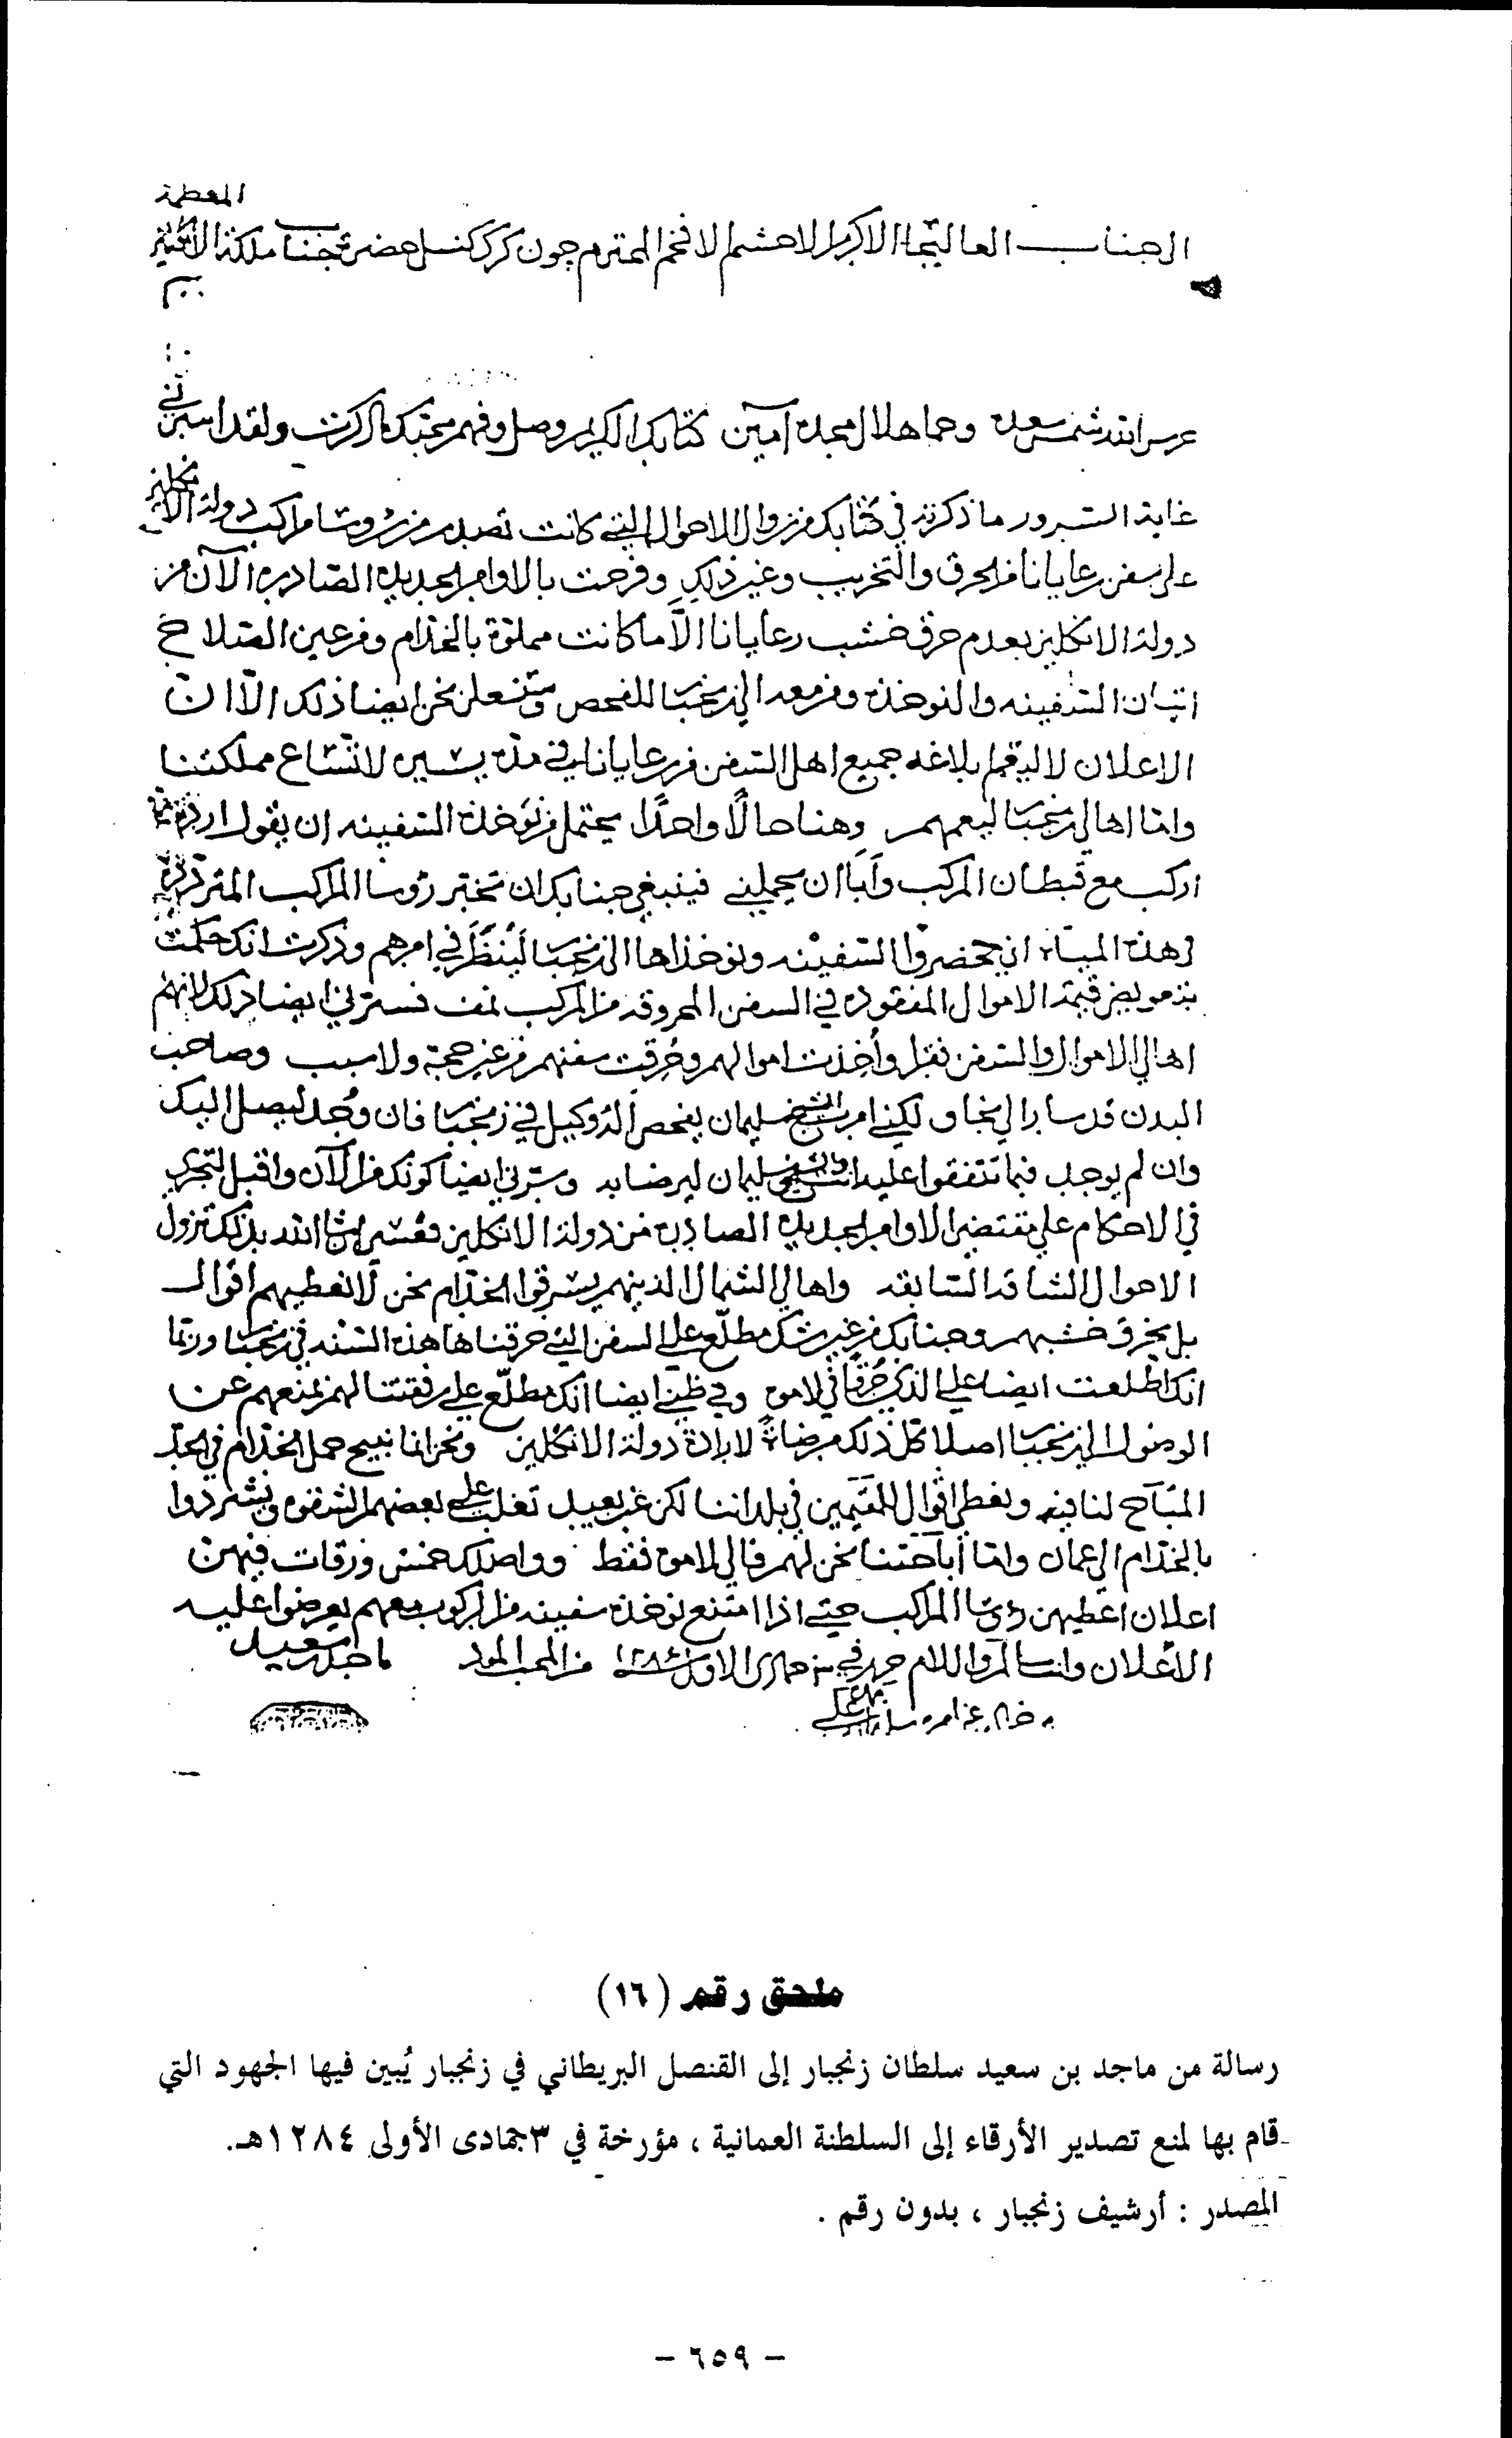 المعظمة
الجناب العاليجاه الاكرم الاحشم الافخم المحترم جون كرك كنسل حضرة جناب ملكة الانكليز
حرس الله شمس سعده وحما هلال مجده آمين كتابك الكريم وصل وفهم محبك ما ذكرت ولقد اسرني
غاية السرور ما ذكرته في كتابك من زوال الاحوال التي كانت تصدر من رؤوسا مراكب دولة الانكليز
على سفن رعايانا من الحرق والتخريب وغير ذلك وفرحت بالاوامر الجديده الصادره الآن من
دولة الانكليز بعدم حرق خشب رعايانا الاّ ما كانت مملوّة بالخدّام وفرعين الصلاح
اتيان السفينه والنوخذه ومن معه الى زنجبار للفحص وسنعلن نحن ايضا ذلك الاّ ان
الاعلان لا يمكن بلاغه جميع اهل السفن من رعايانا في مدّة يسيره لاتساع مملكتنا
وامّا اهالي زنجبار ليعمهم وهنا حالًا واحدًا يحتمل من نوخذة السفينه ان يقول اردت
اركب مع قبطان المركب وأبا ان يحملني فينبغي جنابك ان تخبر رؤوسا المراكب المتردّدة
لهذه الميناء ان يحضروا السفينه ونوخذاها الى زنجبار لينظر في امرهم وذكرت انك حكمت
بتعويض قيمة الاموال المفقوده في السفن المحروقه من المركب فسرّني ايضا ذلك لانهم
اهالي الاموال والسفن فقرا وأُخذت اموالهم وحُرقت سفنهم من غير حجة ولا سبب وصاحب
البدن قد سار الى لكني امرت الشيخ سليمان يفحص له وكيل في زنجبار فان وُجد ليصل اليك
وان لم يوجد فبما تتفقوا عليه انت والشيخ سليمان ليرضا به وسرّني ايضا كونك من الآن واقبل لتجري
في الاحكام على مقتضى الاوامر الجديده الصادره من دولة الانكليز فعسى ان شا الله بذلك تزول
الاحوال الشاقه السابقه واهالي الشمال الذينهم يسرقوا الخدّام نحن لا نعطيهم اقوال
بل نحرق خشبهم وجنابك من غير شك مطلّع على السفن التي حرقناها هذه السنه في زنجبار وربّما
انك اطّلعت ايضا على الذي حُرق في لامو وفي ظني ايضا انك مطلّع على رفقتنا لهم نمنعهم عن
الوصول الى زنجبار اصلا كل ذلك مرضاةً لارادة دولة الانكليز ونحن انما نبيح حمل الخدّام في الحد
المُباح لنا فيه ونعطي اقوال للمقيمين في بلداننا لكن غير بعيد تغلب على بعضهم الشقوه ويشردوا
بالخدّام الى عمان وامّا أباحتنا نحن لهم فالى لامو فقط وواصلك خمس ورقات فيهن
اعلان اعطيهن رؤسا المراكب حتى اذا امتنع نوخذة سفينه من الركوب معهم يعرضوا عليه
الأعلان وانت سالم والسلام حرر في ٣ جمادى الاولى سنة ١٢٨٤ من المحب الود ماجد بن سعيد
ملحق رقم (١٦)
رسالة من ماجد بن سعيد سلطان زنجبار إلى القنصل البريطاني في زنجبار يُبين فيها الجهود التي
قام بها لمنع تصدير الأرقاء إلى السلطنة العمانية ، مؤرخة في ٣ جمادى الأولى ١٢٨٤هـ.
المصدر : أرشيف زنجبار ، بدون رقم .
- ٦٥٩ -